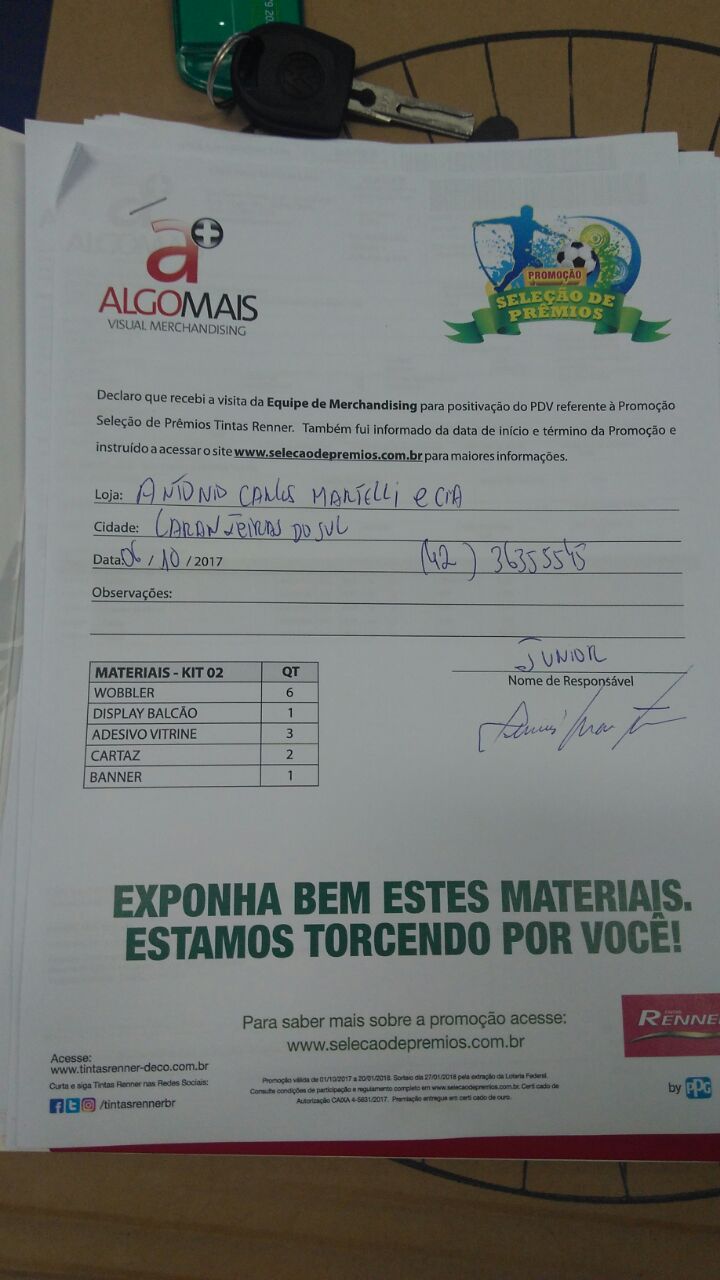 a+
ALGOMAIS
VISUAL MERCHANDISING
PROMOÇÃO
SELEÇÃO DE
PRÊMIOS
Declaro que recebi a visita da Equipe de Merchandising para positivação do PDV referente à Promoção
Seleção de Prêmios Tintas Renner. Também fui informado da data de início e término da Promoção e
instruído a acessar o site www.selecaodepremios.com.br para maiores informações.
Loja: ANTONIO CARLOS MARTELLI e CIA
Cidade: LARANJEIRAS DO SUL
Data: 06 / 10 / 2017 (42) 36355545
Observações:
JUNIOR
Nome de Responsável
MATERIAIS - KIT 02 QT
WOBBLER 6
DISPLAY BALCÃO 1
ADESIVO VITRINE 3
CARTAZ 2
BANNER 1
EXPONHA BEM ESTES MATERIAIS.
ESTAMOS TORCENDO POR VOCÊ!
Para saber mais sobre a promoção acesse:
www.selecaodepremios.com.br
TINTAS
RENNE
Acesse:
www.tintasrenner-deco.com.br
Curta e siga Tintas Renner nas Redes Sociais:
/tintasrennerbr
Promoção válida de 01/10/2017 a 20/01/2018. Sorteio dia 27/01/2018 pela extração da Loteria Federal.
Consulte condições de participação e regulamento completo em www.selecaodepremios.com.br. Certi cado de
Autorização CAIXA 4-5831/2017. Premiação entregue em certi cado de ouro.
by PPG